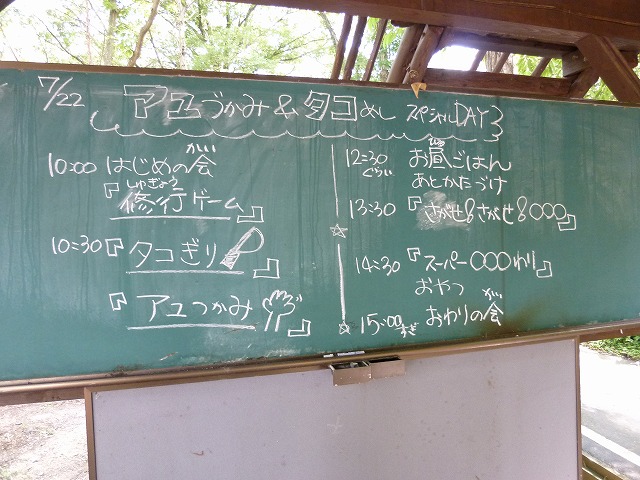 7/22 アユづかみ&タコめし スペシャルDAY3
10:00 はじめの会
がい
しゅぎょう
『修行ゲーム』
10:30 『タコぎり』
『アユつかみ』
12:30 お昼ごはん
ぐらい あとかたづけ
13:30 『さがせ!さがせ!○○○』
14:30 『スーパー○○○わり』
おやつ
がい
15:00すぎ おわりの会